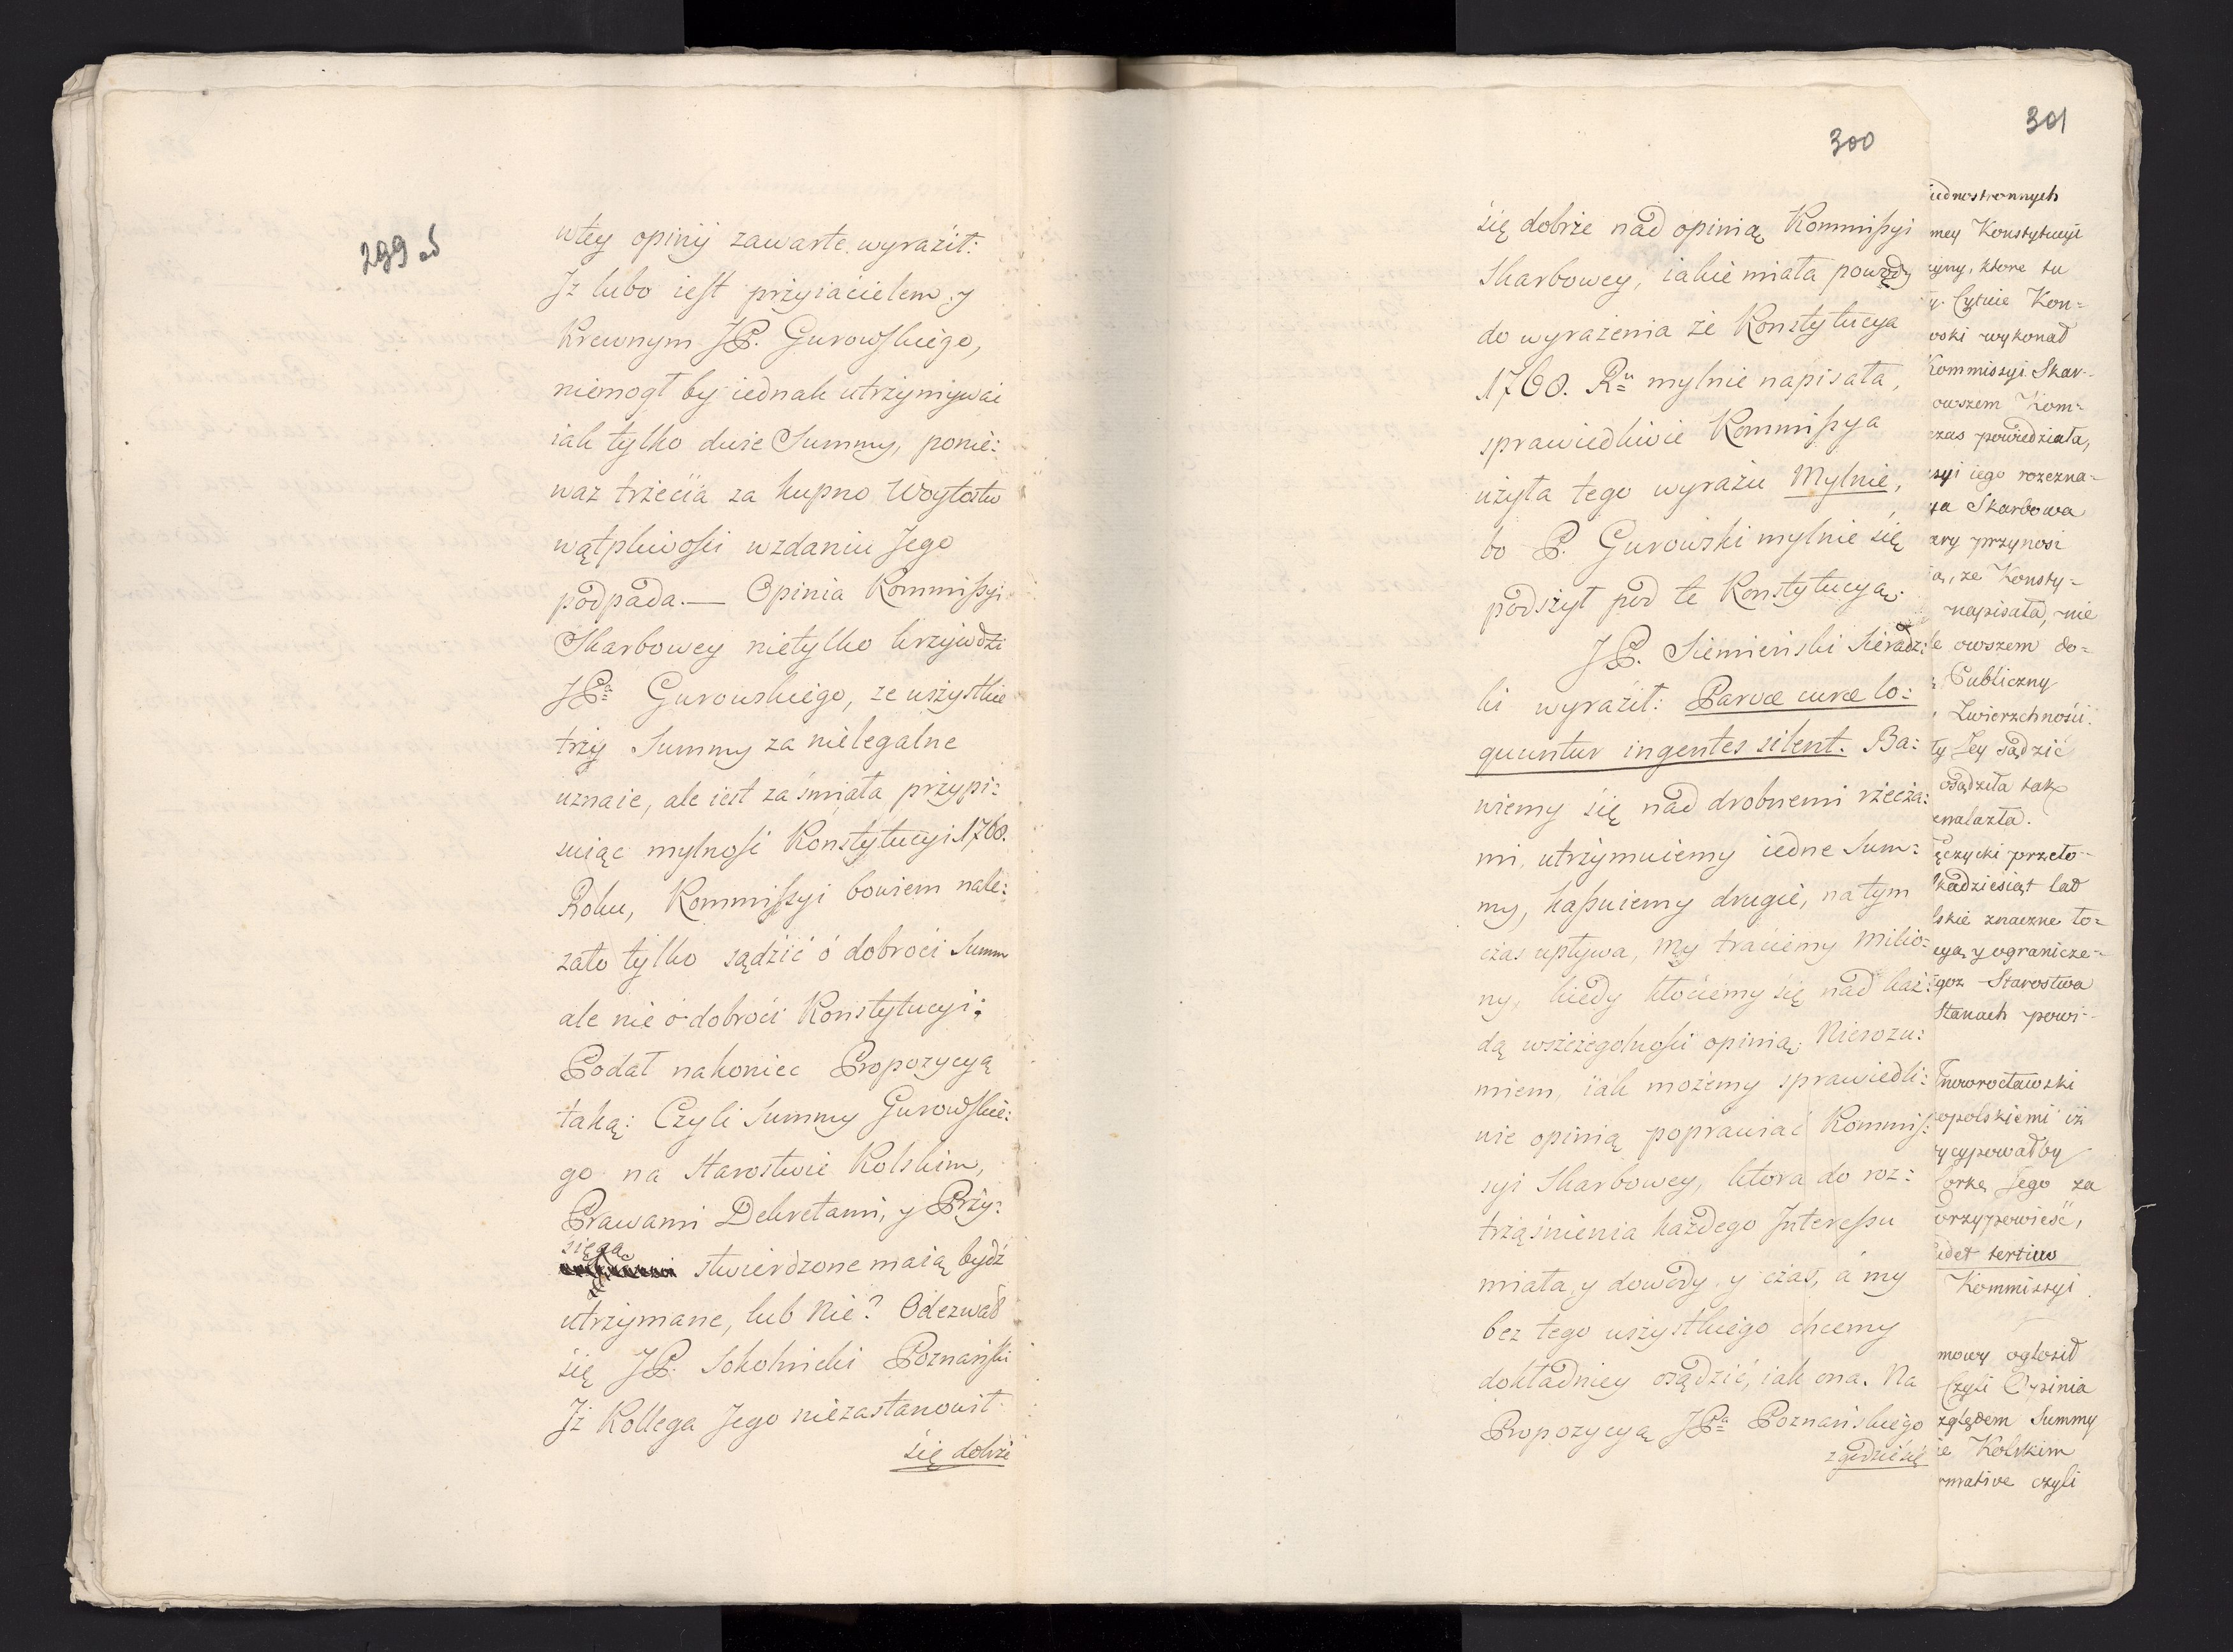 299 od
wtey opinij zawarte wyraził:
Jż lubo iest przyiacielem y
Krewnym JP. Gurowskiego,
niemogł by iednak utrzymywać
iak tylko dwie Summy, ponie:
waż trzecia za kupno Woytostw
wątpliwości wzdaniu Jego
podpada.— Opinia Kommissyi
Skarbowey nietylko krzywdzi
JPa Gurowskiego, ze wszystkie
trzy Summy za nielegalne
uznaie, ale iest za śmiała przypi:
suiąc mylność Konstytucyi 1768.
Roku, Kommissyi bowiem nale:
zało tylko sądzić o dobroci Summ
ale nie o dobroci Konstytucyi;
Podał nakoniec Propozycyą
taką: Czyli Summy Gurowskie:
go na Starostwie Kolskim,
Prawami Dekretami, y Przy:
sięgą stwierdzone maią bydź
utrzymane, lub Nie? Odezwał
się JP. Sokolnicki Poznański
Jż Kollega Jego niezastanowił
się dobrze
300
się dobrze nad opinią Kommissyi
Skarbowey, iakie miała powody
do wyrażenia że Konstytucya
1768. Ru mylnie napisała,
sprawiedliwie Kommissya
użyła tego wyrazu Mylnie,
bo P. Gurowski mylnie się
podszył pod te Konstytucyą.
JP. Siemieński Sieradz:
ki wyraził: Parvæ curæ lo:
quuntur ingentes silent. Ba:
wiemy się nad drobnemi rzecza:
mi, utrzymuiemy iedne Sum:
my, kassuiemy drugie, na tym
czas upływa, My traciemy Milio:
ny, kiedy kłociemy się nad każ:
dą wszczegolności opinią. Nierozu:
miem, iak możemy sprawiedli:
wie opinią poprawiać Kommis:
syi Skarbowey, ktora do roz:
trząśnienia każdego Interessu
miała y dowody y czas, á my
bez tego wszystkiego chcemy
dokładniey osądzić, iak ona. Na
Propozycyą JPa Poznańskiego
zgodzić się
301
iednostronnych
mey Konstytucyi
yny, ktore tu
Cytuie Kon=
oski wykonał
Kommissyi Skar-
owszem Kom=
czas powiedziała,
syi iego rozezna=
ya Skarbowa
ary przynosi
ą, ze Konsty=
napisała, nie
le owszem do=
Publiczny
Zwierzchności.
ty Jey sądzić
osądziła tak
znalazła.
ęczycki przeło-
kadziesiąt lat
lskie znaczne to=
cyą y ogranicze-
goz Starostwa
Stanach powi-
Jnowrocławski
opolskiemi iż
ycypowałby
Corkę Jego za
przypowieść,
udet tertius
Kommissyi
mowy ogłosił
Czyli Opinia
zględem Summy
ie Kolskim
rmative czyli